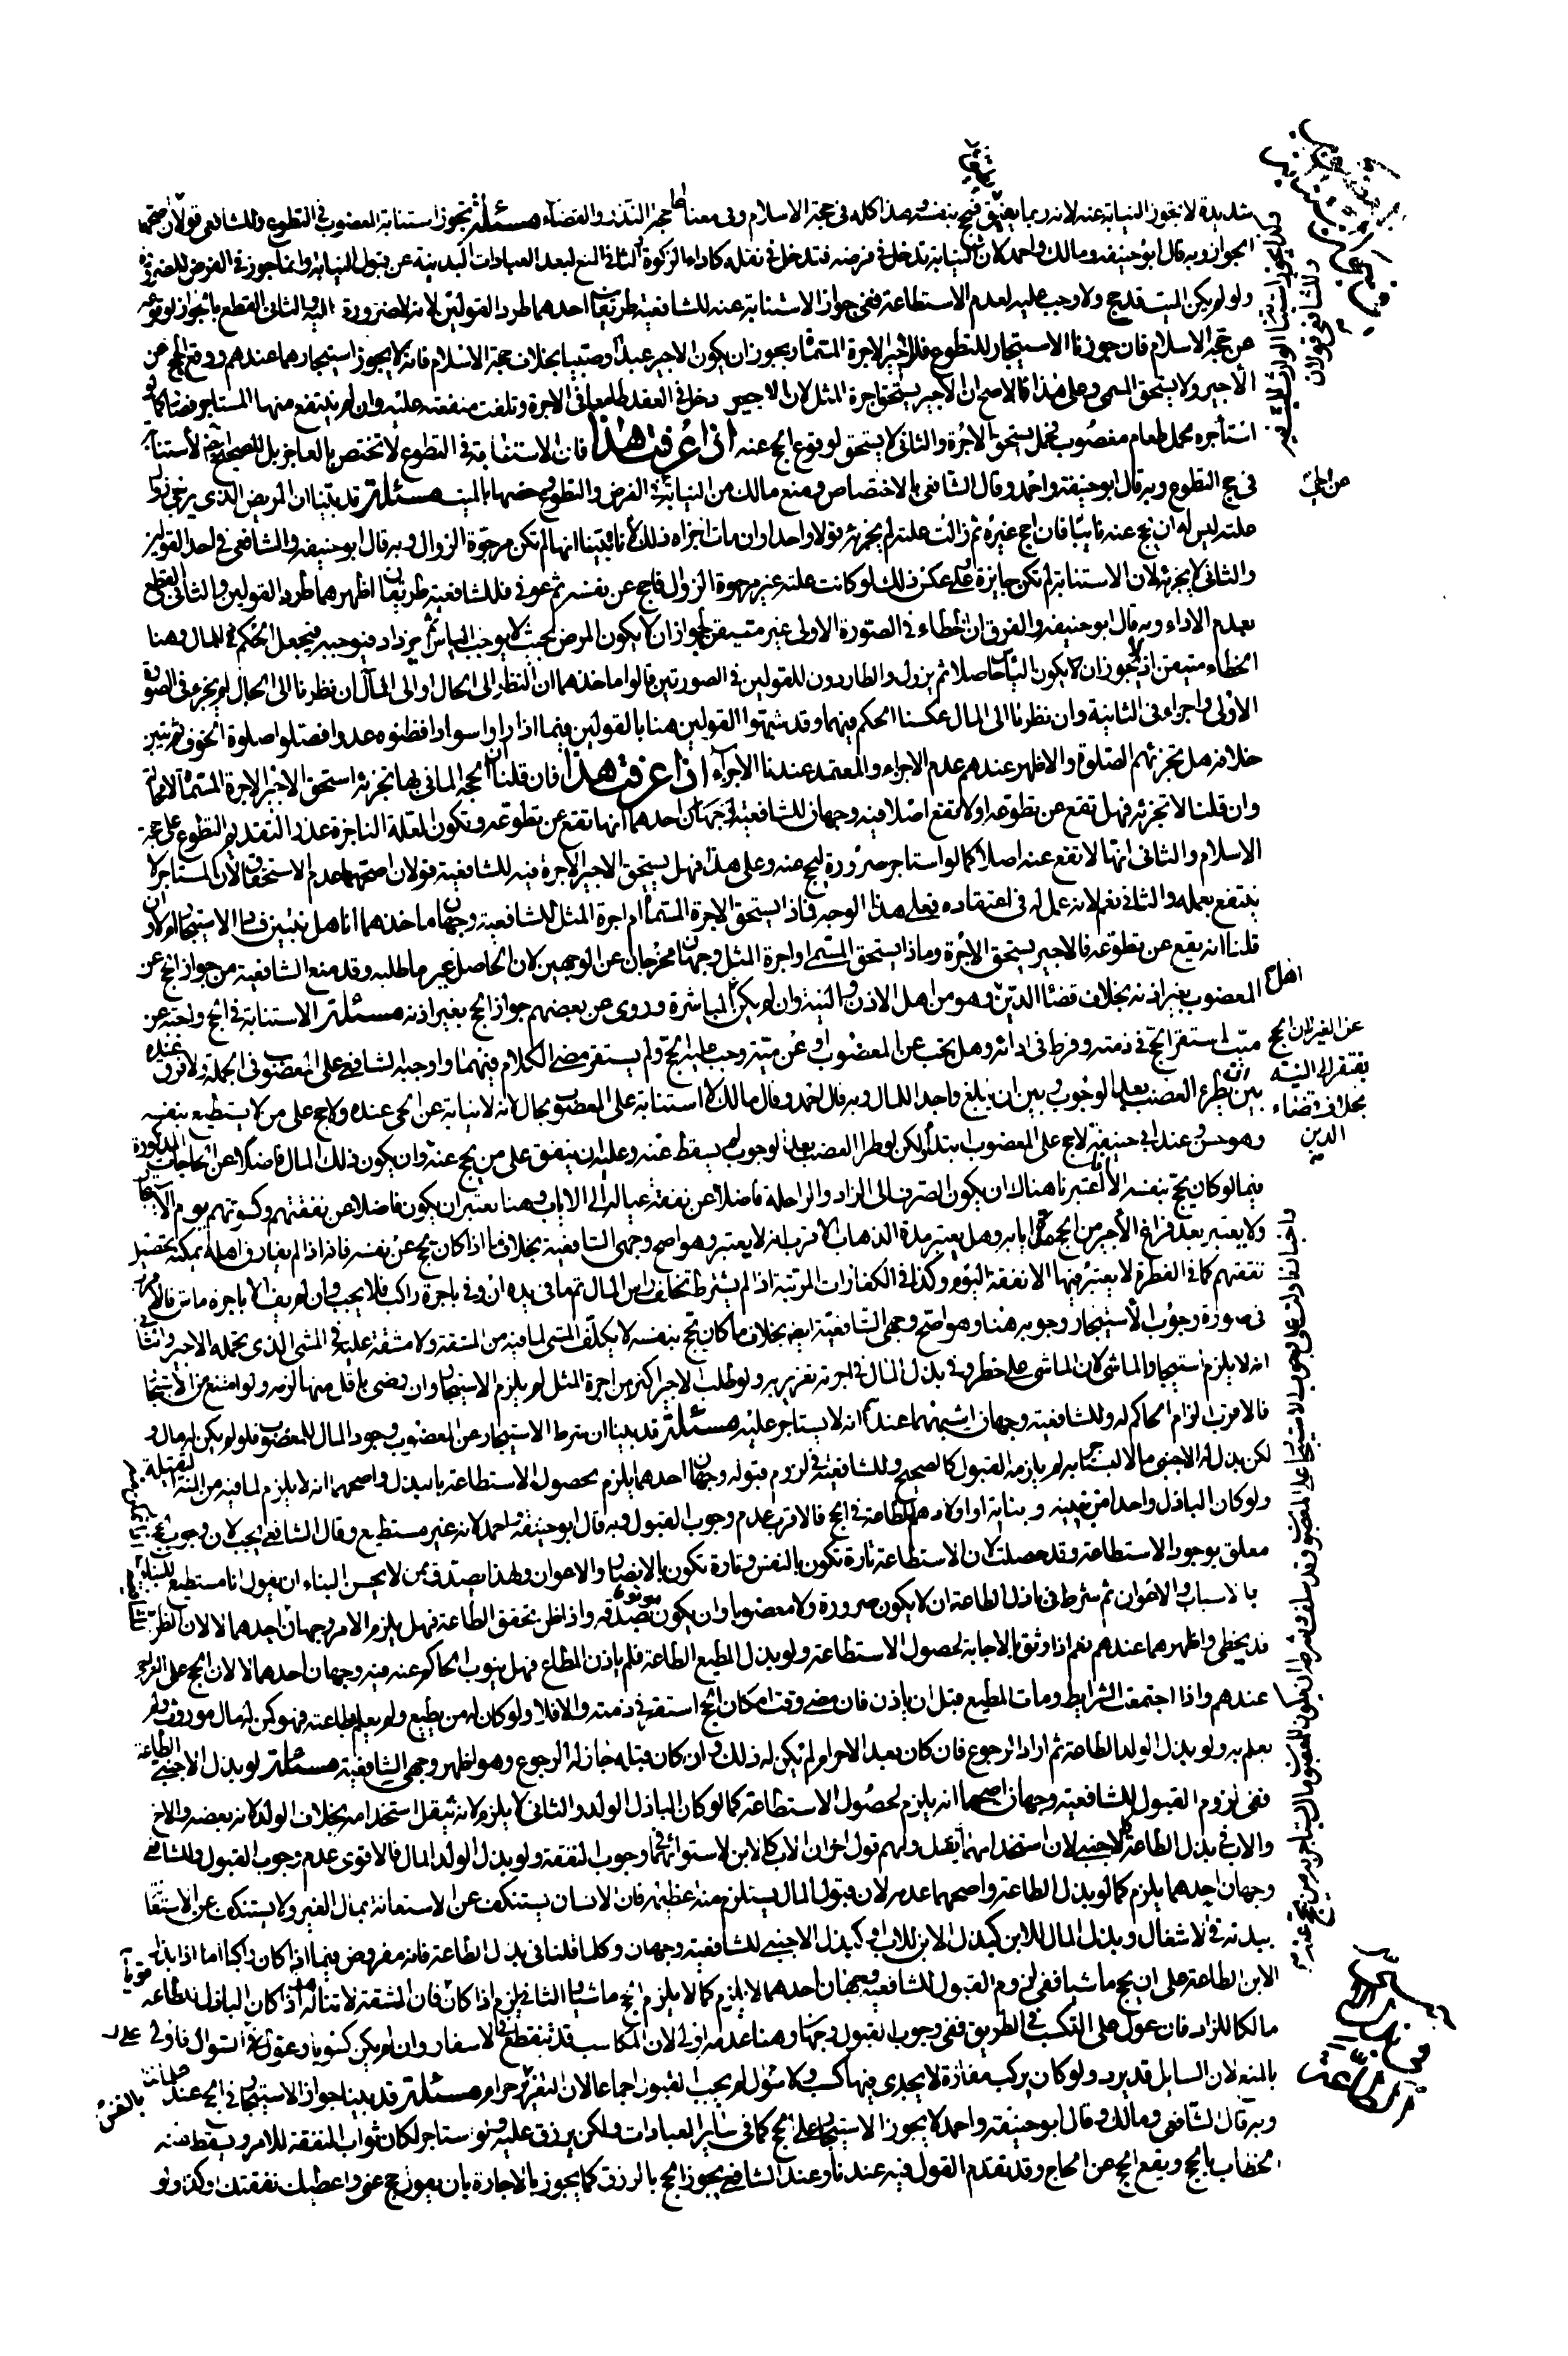 شديدة لا تجوز النيابة عنه لانه ربما يعيق فيحج بنفسه وهذا كله فى حجة الاسلام وفى معناها حجة النذر والقضاء مسئلة تجوز استنابة المعضوب فى التطوع وللشافعى قولان اصحهما
الجواز وبه قال ابوحنيفة ومالك واحمد لان النيابة تدخل فى فرضه فتدخل فى نفله كاداء الزكوة الثانى المنع لبعد العبادات البدنية عن قبول النيابة وانما جوز فى الفرض للضرورة
ولو لم يكن الميت قد حج ولا وجب عليه لعدم الاستطاعة ففى جواز الاستنابة عنه للشافعية طريقان احدهما طرد القولين لانه لا ضرورة اليه والثانى القطع بالجواز لوقوعه
عن حجة الاسلام فان جوزنا الاستيجار للتطوع فللاجير الاجرة المسماة ويجوز ان يكون الاجير عبدا وصبيا بخلاف حجة الاسلام فانه لا يجوز استيجارهما عندهم ووقع الحج عن
الاجير ولا يستحق المسمى وعلى هذا فالاصح ان الاجير يستحق اجرة المثل لان الاجير دخل فى العقد طامعا فى الاجرة وتلفت منفعته عليه وان لم ينتفع منها المستاجر فصار كما لو
استاجره لحمل طعام مغصوب فحمل يستحق الاجرة والثانى لا يستحق لوقوع الحج عنه اذا عرفت هذا فان الاستنابة فى التطوع لا تختص بالعاجز بل للصحيح الاستنابة
فى حج التطوع وبه قال ابوحنيفة واحمد وقال الشافعى بالاختصاص ومنع مالك من النيابة فى الفرض والتطوع وخصها بالميت مسئلة قد بينا ان المريض الذى يرجى زوال
علته ليس له ان يحج عنه نائبا فان احج غيره ثم زالت علته لم يجزئه قولا واحدا وان مات اجزاه ذلك لانا تبينا انها لم تكن مرجوة الزوال وبه قال ابوحنيفه والشافعى فى احد القولين
والثانى لا يجزئه لان الاستنابة لم تكن جايزة وعلى عكس ذلك لو كانت علته غير مرجوة الزوال فاحج عن نفسه ثم عوفى فللشافعية طريقان اظهرهما طرد القولين والثانى القطع
بعدم الاداء وبه قال ابوحنيفه والفرق ان الخطاء فى الصورة الاولى غير متيقن لجواز ان لا يكون المرض بحيث لا يوجب الياس ثم يزداد فيوجبه فيجعل الحكم للمال وهنا
الخطاء متيقن اذ لا يجوز ان يكون الياس حاصلا ثم يزول والطاردون للقولين فى الصورتين قالوا ماخذهما ان النظر الى الحال او الى المآل ان نظرنا الى الحال لم يجز فى الصورة
الاولى واجزاه فى الثانية وان نظرنا الى المال عكسنا الحكم فيهما وقد شبهوا القولين هنا بالقولين فيما اذا راوا سوادا فظنوه عدوا فصلوا صلوة الخوف ثم تبين
خلافه هل تجزئهم الصلوة والاظهر عندهم عدم الاجزاء والمعتمد عندنا الاجزاء اذا عرفت هذا فان قلنا ان الحجة الماتى بها تجزئه استحق الاجير الاجرة المسماة
وان قلنا لا تجزئه فهل تقع عن تطوعه او لا تقع اصلا فيه وجهان للشافعية احدهما انها تقع عن تطوعه وتكون العلة الناجزة عذرا لتقديم التطوع على حجة
الاسلام والثانى انها لا تقع عنه اصلا كما لو استاجر صرورة ليحج عنه وعلى هذا فهل يستحق الاجير الاجرة فيه للشافعية قولان اصحهما عدم الاستحقاق لان المستاجر لا
ينتفع بعمله والثانى نعم لانه عمل له فى اعتقاده فعلى هذا الوجه فماذا يستحق الاجرة المسماة ام اجرة المثل للشافعية وجهان ماخذهما انا هل نتبين فساد الاستيجار ام لا وان
قلنا انه يقع عن تطوعه فالاجير يستحق الاجرة وماذا يستحق المسمى او اجرة المثل وجهان مخرجان عن الوجهين لان الحاصل غير ما طلبه وقد منع الشافعية من جواز الحج عن
المعضوب بغير اذنه بخلاف قضاء الدين وهو من اهل الاذن والنية وان لم يكن اهل المباشرة وروى عن بعضهم جواز الحج بغير اذنه مسئلة الاستنابة فى الحج واجبة عن
ميت استقر الحج فى ذمته وفرط فى ادائه وهل يجب عن المعضوب او عن ميت وجب عليه الحج ولم يستقر مضى الكلام فيهما واوجبه الشافعى على المعضوب فى الجملة ولا فرق عنده
بين ان يطرء العضب بعد الوجوب وبين ان يبلغ واجد المال وبه قال احمد وقال مالك لا استنابة على المعضوب بحال لانه لا نيابة عن الحى عنده ولا حج على من لا يستطيع بنفسه
وعند ابى حنيفة لا حج على المعضوب ابتداء لكن لو طرا العضب بعد الوجوب لم يسقط عنه وعليه ان ينفق على من يحج عنه وان يكون ذلك المال فاضلا عن الحاجات المذكورة
فيما لو كان يحج بنفسه الا انا اعتبرنا هناك ان يكون الصرف الى الزاد والراحلة فاضلا عن نفقة عياله الى الاياب وهنا يعتبر ان يكون فاضلا عن نفقتهم وكسوتهم يوم الاستيجار
ولا يعتبر بعد فراغ الاجير من الحج الى ايابه وهل يعتبر مدة الذهاب الاقرب انه لا يعتبر وهو اصح وجهى الشافعية بخلاف ما اذا كان يحج عن نفسه فانه اذا لم يفارق اهله يمكنه تحصيل
نفقتهم كما فى الفطرة لا يعتبر فيها الا نفقة اليوم وكذا فى الكفارات المرتبة اذا لم يشترط تخلف راس المال ثم ما فى يده ان وفى باجرة راكب فلا يحب وان لم يف الا باجرة ماش فالاقرب
فى صورة وجوب الاستيجار وجوبه هنا وهو اصح وجهى الشافعية ايضا بخلاف ما كان يحج بنفسه لا يكلف المشى لما فيه من المشقة ولا مشقة عليه فى المشى الذى يتحمله الاجير والثانى
انه لا يلزم استيجار الماشى لان الماشى على خطر وفى بذل المال فى اجرته تغرير به ولو طلب الاجير اكثر من اجرة المثل لم يلزم الاستيجار وان رضى باقل منها لزمه ولو امتنع من الاستيجار
فالاقرب الزام الحاكم له وللشافعية وجهان اشبههما عندهم انه لا يستاجر عليه مسئلة قد بينا ان شرط الاستيجار عن المعضوب وجود المال للمعضوب فلو لم يكن له مال و
لكن بذل له الاجنبى مالا ليستاجر به لم يلزمه القبول كالصحيح وللشافعية فى لزوم قبوله وجهان احدهما يلزم لحصول الاستطاعة بما يبذل واصحهما انه لا يلزم لما فيه من المنة الثقيلة
ولو كان الباذل واحدا من بنيه وبناته او اولادهم الطاعة فى الحج فالاقرب عدم وجوب القبول وبه قال ابوحنيفة واحمد لانه غير مستطيع وقال الشافعى يجب لان وجوب الحج
معلق بوجود الاستطاعة وقد حصلت لان الاستطاعة تارة تكون بالنفس وتارة تكون بالانصار والاعوان ولهذا يصدق ممن لا يحسن البناء ان يقول انا مستطيع للبناء
بالاسباب والاعوان ثم شرط فى باذل الطاعة ان لا يكون صرورة ولا معضوبا وان يكون موثوقا بصدقه واذا ظن تحقق الطاعة فهل يلزم الامر وجهان احدهما لا لان الظن
قد يخطى واظهرهما عندهم نعم اذا وثق بالاجابة لحصول الاستطاعة ولو بذل المطيع الطاعة فلم ياذن المطاع فهل ينوب الحاكم عنه فيه وجهان احدهما لا لان الحج على التراخى
عندهم واذا اجتمعت الشرايط ومات المطيع قبل ان ياذن فان مضى وقت امكان الحج استقر فى ذمته والا فلا ولو كان له من يطيع ولم يعلم بطاعته فهو كمن له مال موروث ولم
يعلم به ولو بذل الولد الطاعة ثم اراد الرجوع فان كان بعد الاحرام لم يكن له ذلك وان كان قبله جاز له الرجوع وهو اظهر وجهى الشافعية مسئلة لو بذل الاجنبى الطاعة
ففى لزوم القبول للشافعية وجهان اصحهما انه يلزم لحصول الاستطاعة كما لو كان الباذل الولد والثانى لا يلزم لانه يثقل استخدامه بخلاف الولد لانه بعضه والاخ
والاب فى بذل الطاعة كالاجنبى لان استخدامهما يثقل ولهم قول اخر ان الاب كالابن لاستوائهما فى وجوب النفقة ولو بذل الولد المال فالاقوى عدم وجوب القبول وللشافعى
وجهان احدهما يلزم كما لو بذل الطاعة واصحهما عدمه لان قبول المال يستلزم منة عظيمة فان الانسان يستنكف عن الاستعانة بمال الغير ولا يستنكف عن الاستعانة
ببدنه فى الاشغال وبذل المال للابن كبذل الابن للاب او كبذل الاجنبى للشافعية وجهان وكلما قلنا فى بذل الطاعة فانه مفروض فيما اذا كان راكبا اما اذا بذل
الابن الطاعة على ان يحج ماشيا ففى لزوم القبول للشافعية وجهان احدهما لا يلزم كما لا يلزم الحج ماشيا والثانى يلزم اذا كان قويا فان المشقة لا تناله هذا اذا كان الباذل للطاعة
مالكا للزاد فان عول على التكسب فى الطريق ففى وجوب القبول وجهان وهنا عدمه اولى لان المكاسب قد تنقطع فى الاسفار وان لم يكن كسوبا وعول على السوال فاولى
بالمنع لان السايل قد يرد ولو كان يركب مفازة لا يجدى فيها كسب ولا سؤال لم يجب القبول اجماعا لان التغرير بالنفس حرام مسئلة قد بينا جواز الاستيجار فى الحج عند علمائنا
وبه قال الشافعى ومالك وقال ابوحنيفة واحمد لا يجوز الاستيجار على الحج كما فى سائر العبادات ولكن يرزق عليه ولو استاجر لكان ثواب النفقة للامر ويسقط عنه
الخطاب بالحج ويقع الحج عن الحاج وقد تقدم القول فيه عندنا وعند الشافعى يجوز الحج بالرزق كما يجوز بالاجارة بان يقول حج عنى واعطيك نفقتك وكذا ولو
عن الغير لان الحج
يفتقر الى النية
بخلاف قضاء
الدين